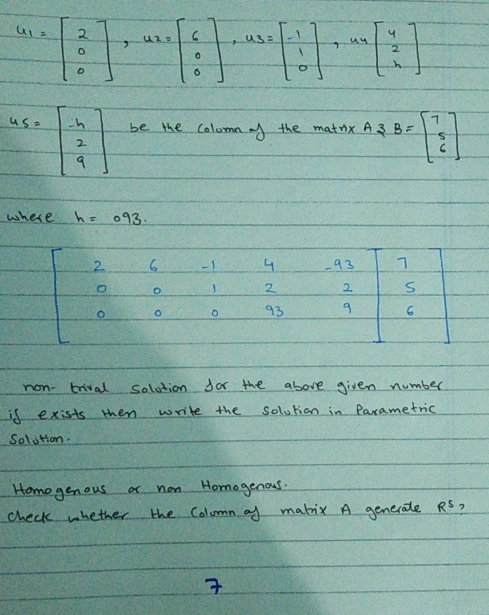 u1 = [2 0 0], u2 = [6 0 0], u3 = [-1 1 0], u4 [4 2 h]
u5 = [-h 2 9] be the column of the matrix A & B = [7 5 6]
where h = 093.
2 6 -1 4 -93 7
0 0 1 2 2 5
0 0 0 93 9 6
non-trival solution for the above given number
if exists then write the solution in Parametric
Solution.
Homogenous or non Homogenous.
Check whether the Column of matrix A generate R5?
7